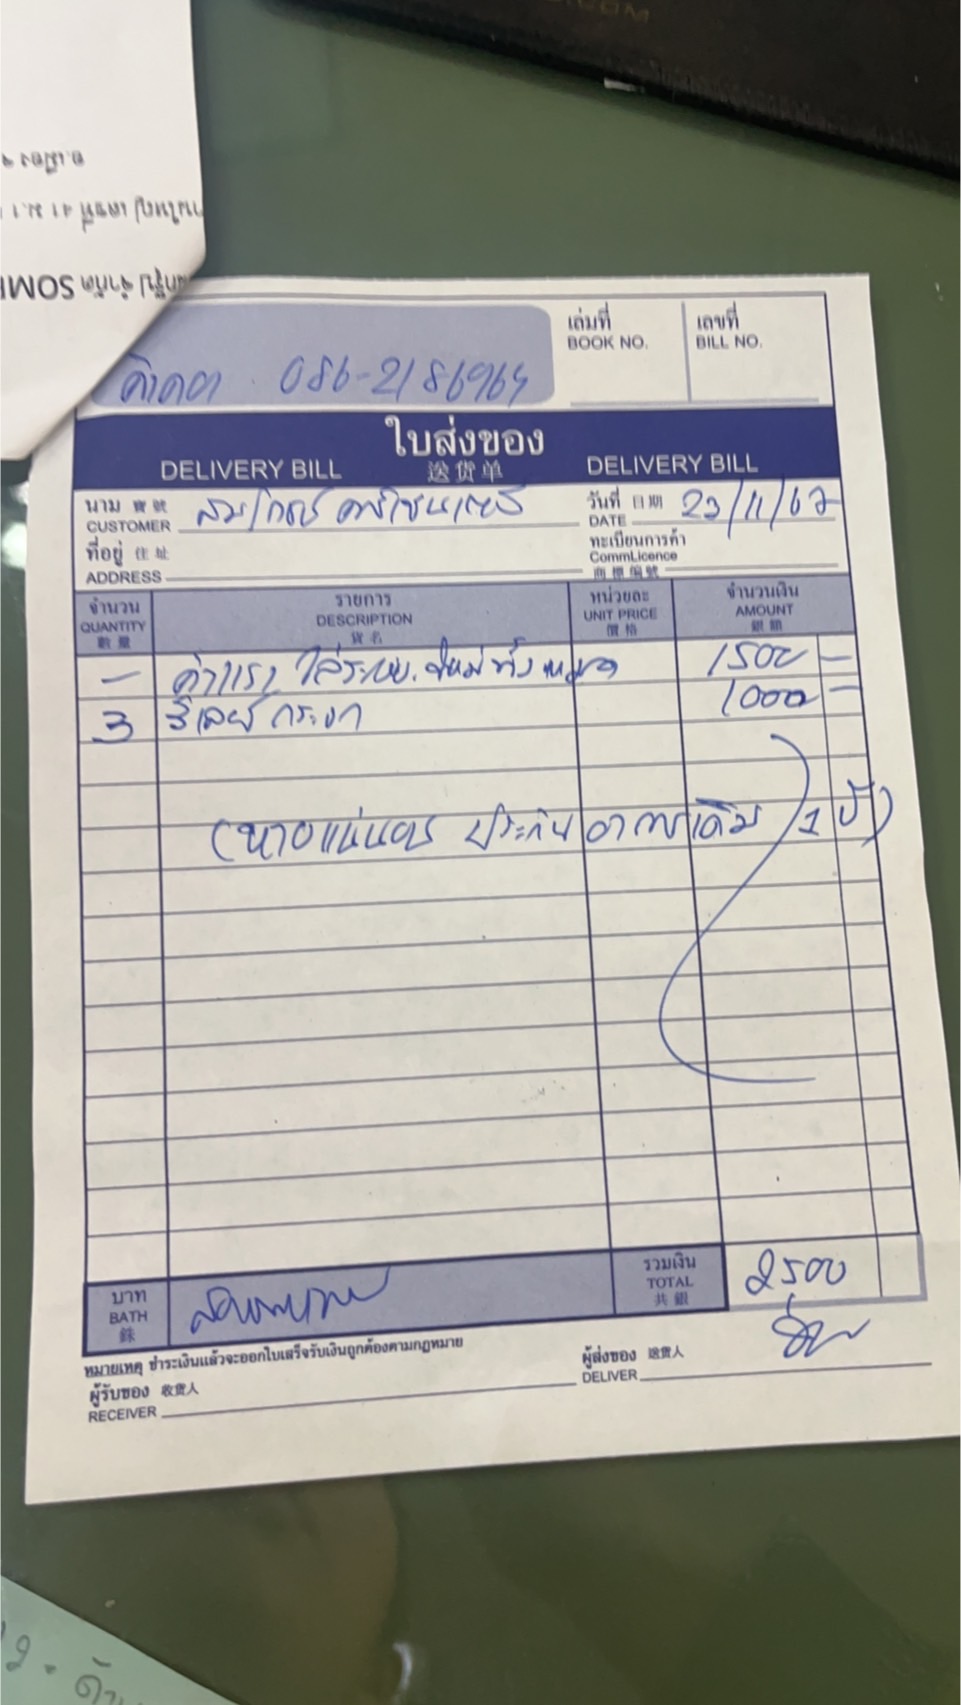 .COM
086-2186964
เล่มที่
BOOK NO.
เลขที่
BILL NO.
ใบส่งของ
DELIVERY BILL 送货单 DELIVERY BILL
นาม 寶號
CUSTOMER
วันที่ 日期
DATE 23/11/67
ที่อยู่ 住址
ADDRESS
ทะเบียนการค้า
CommLicence
商標編號
จำนวน
QUANTITY
數量
รายการ
DESCRIPTION
貨名
หน่วยละ
UNIT PRICE
價格
จำนวนเงิน
AMOUNT
銀額
– ค่าแรง ใส่ระบบ ใหม่ทั้งหมด 1500 –
3 รีเลย์ กระจก 1000 –
(หายแน่นอน ประกัน อาการเดิม 1 ปี)
บาท
BATH
銖
รวมเงิน
TOTAL
共銀
2500
หมายเหตุ ชำระเงินแล้วจะออกใบเสร็จรับเงินถูกต้องตามกฎหมาย
ผู้รับของ 收货人
RECEIVER
ผู้ส่งของ 送货人
DELIVER